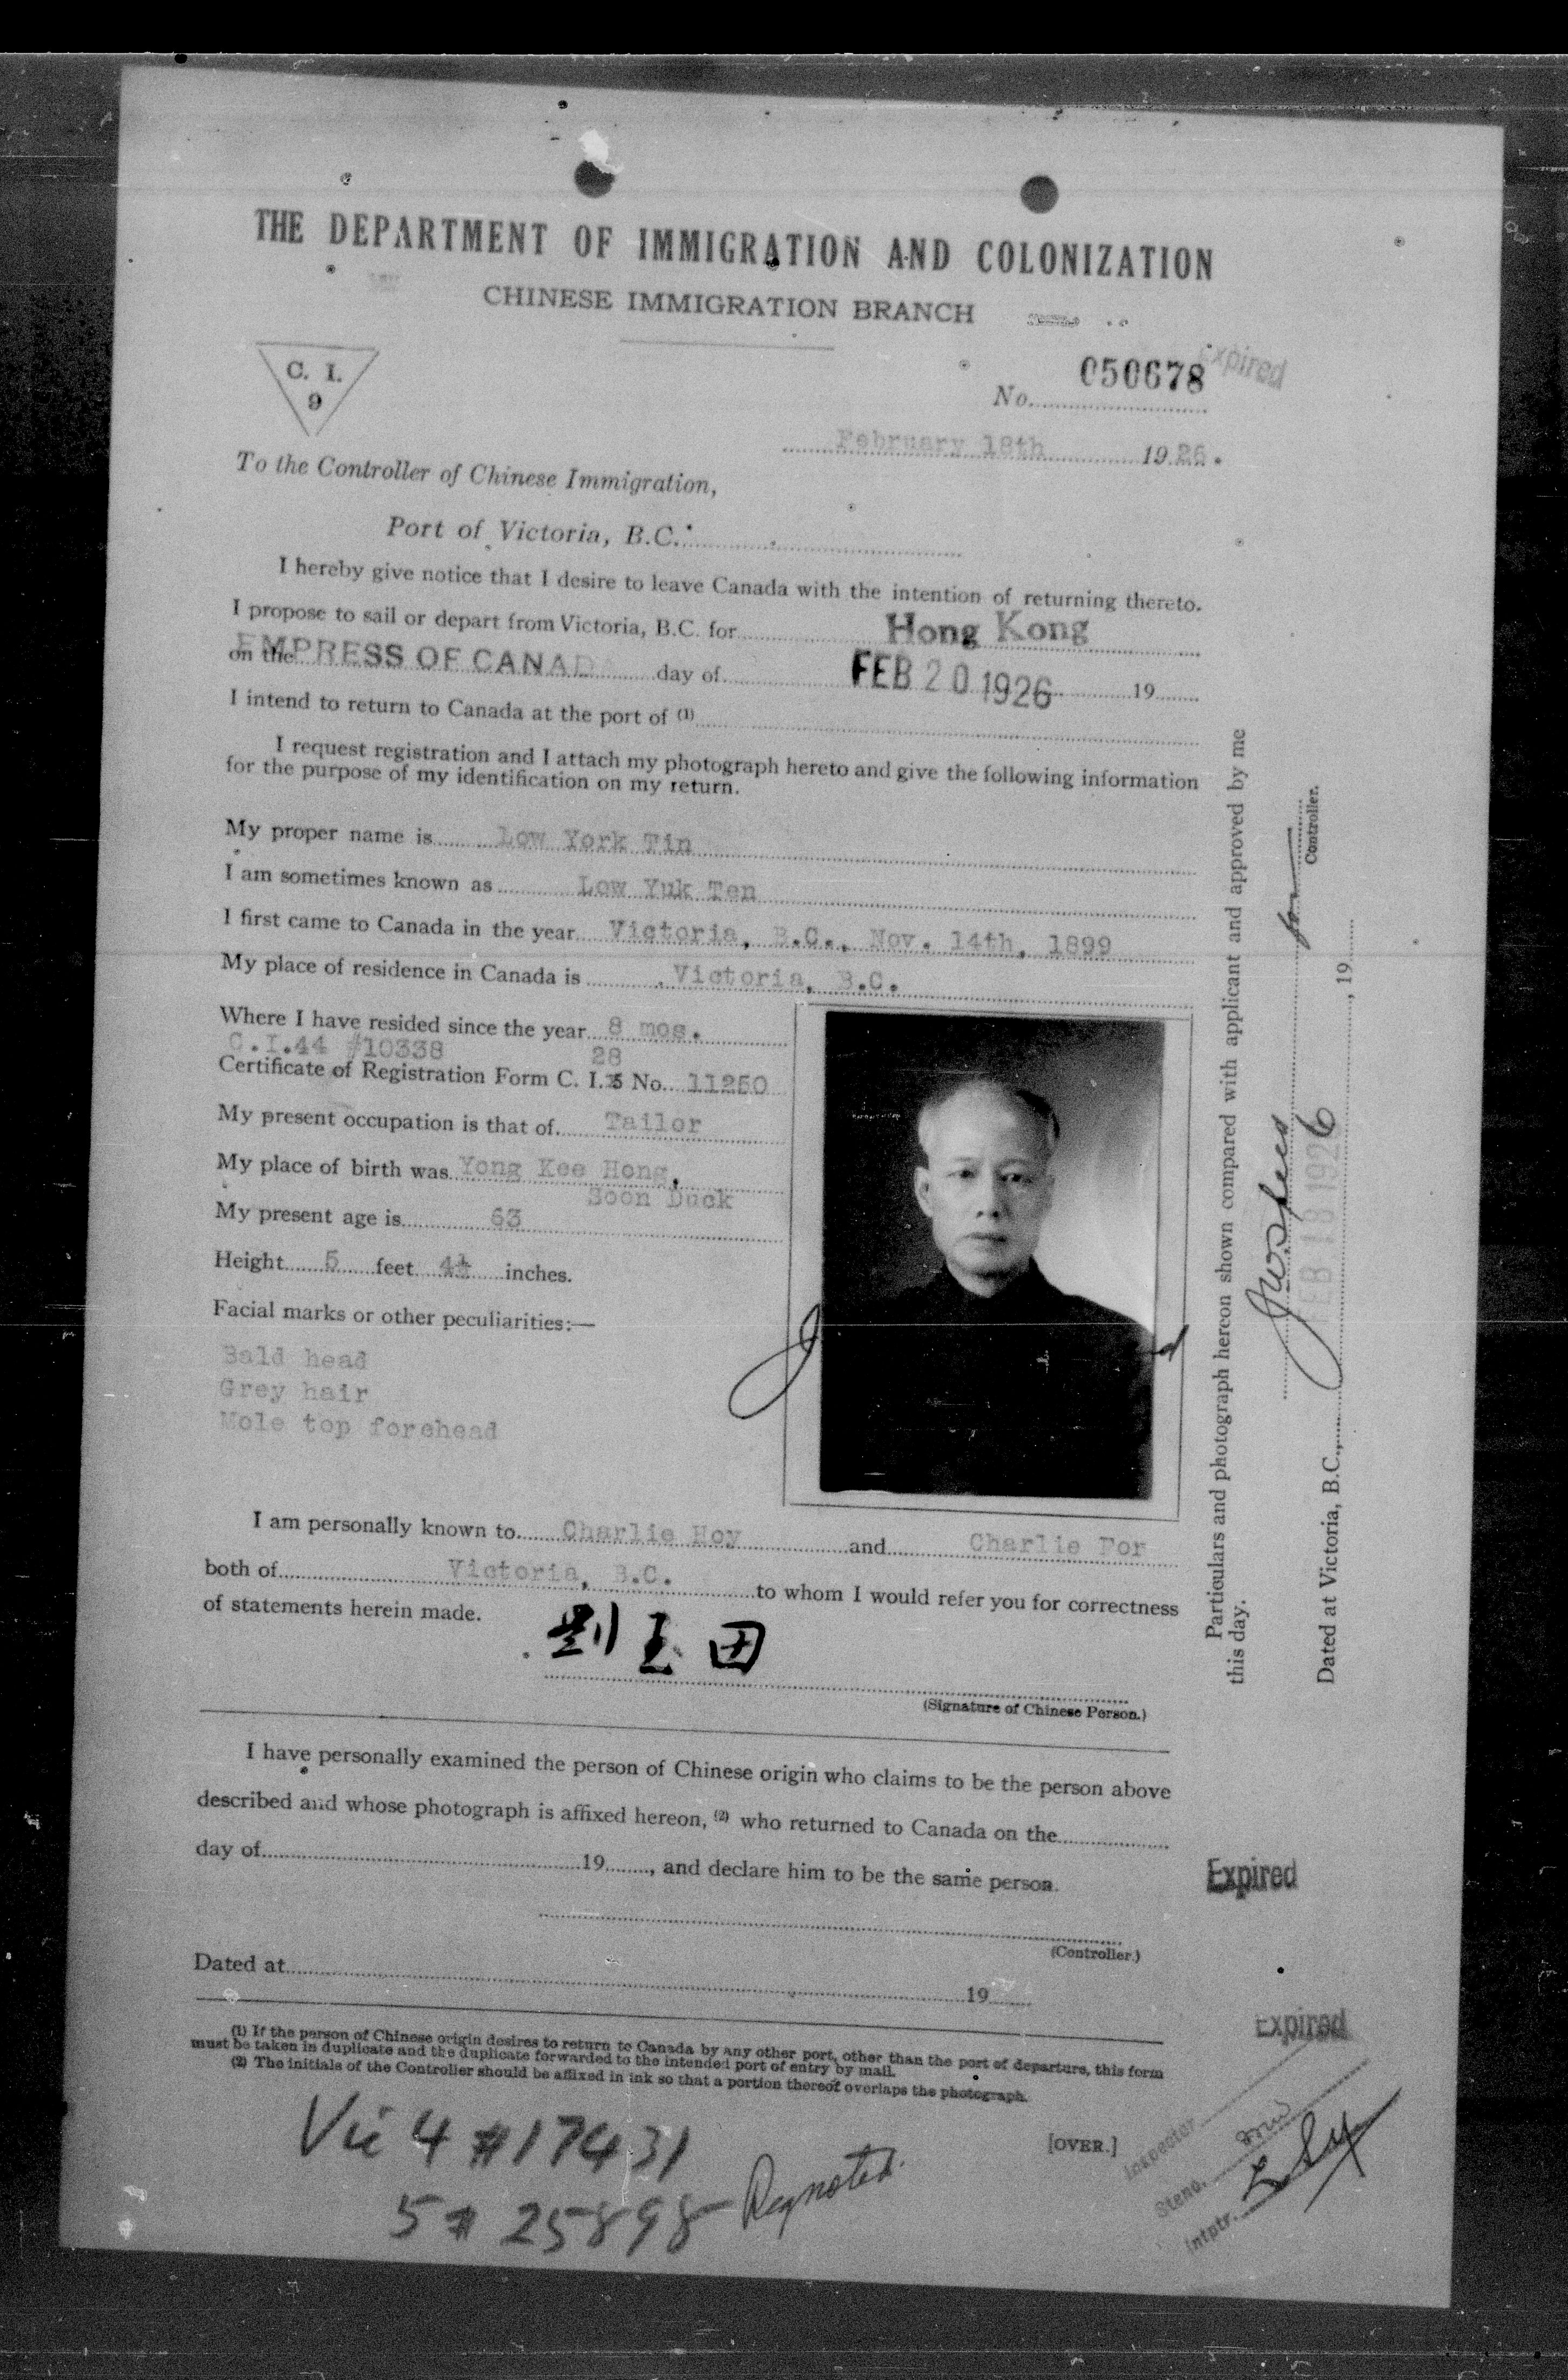 THE DEPARTMENT OF IMMIGRATION AND COLONIZATION
CHINESE IMMIGRATION BRANCH
C. I.
9
Expired
050678
No.
February 18th 1926.
To the Controller of Chinese Immigration,
Port of Victoria, B.C.
I hereby give notice that I desire to leave Canada with the intention of returning thereto.
I propose to sail or depart from Victoria, B.C. for Hong Kong
on the EMPRESS OF CANADA day of FEB 20 1926 19
I intend to return to Canada at the port of (1)
I request registration and I attach my photograph hereto and give the following information
for the purpose of my identification on my return.
My proper name is Low York Tin
I am sometimes known as Low Yuk Ten
I first came to Canada in the year Victoria, B.C., Nov. 14th, 1899
My place of residence in Canada is Victoria, B.C.
Where I have resided since the year 8 mos.
C.I.44 #10338 28
Certificate of Registration Form C. I. 5 No. 11250
My present occupation is that of Tailor
My place of birth was Yong Kee Hong,
Soon Duck
My present age is 63
Height 5 feet 4½ inches.
Facial marks or other peculiarities:—
Bald head
Grey hair
Mole top forehead
I am personally known to Charlie Hoy and Charlie For
both of Victoria, B.C. to whom I would refer you for correctness
of statements herein made.
刘玉田
(Signature of Chinese Person.)
I have personally examined the person of Chinese origin who claims to be the person above
described and whose photograph is affixed hereon, (2) who returned to Canada on the
day of 19, and declare him to be the same person.
(Controller.)
Dated at 19
(1) If the person of Chinese origin desires to return to Canada by any other port, other than the port of departure, this form
must be taken in duplicate and the duplicate forwarded to the intended port of entry by mail.
(2) The initials of the Controller should be affixed in ink so that a portion thereof overlaps the photograph.
[OVER.]
Vic 4 #17431
5# 25898 Reg noted.
Particulars and photograph hereon shown compared with applicant and approved by me
this day.
for
Controller.
Dated at Victoria, B.C., FEB 18 1926, 19
Expired
Expired
Inspector
Steno.
Intptr.